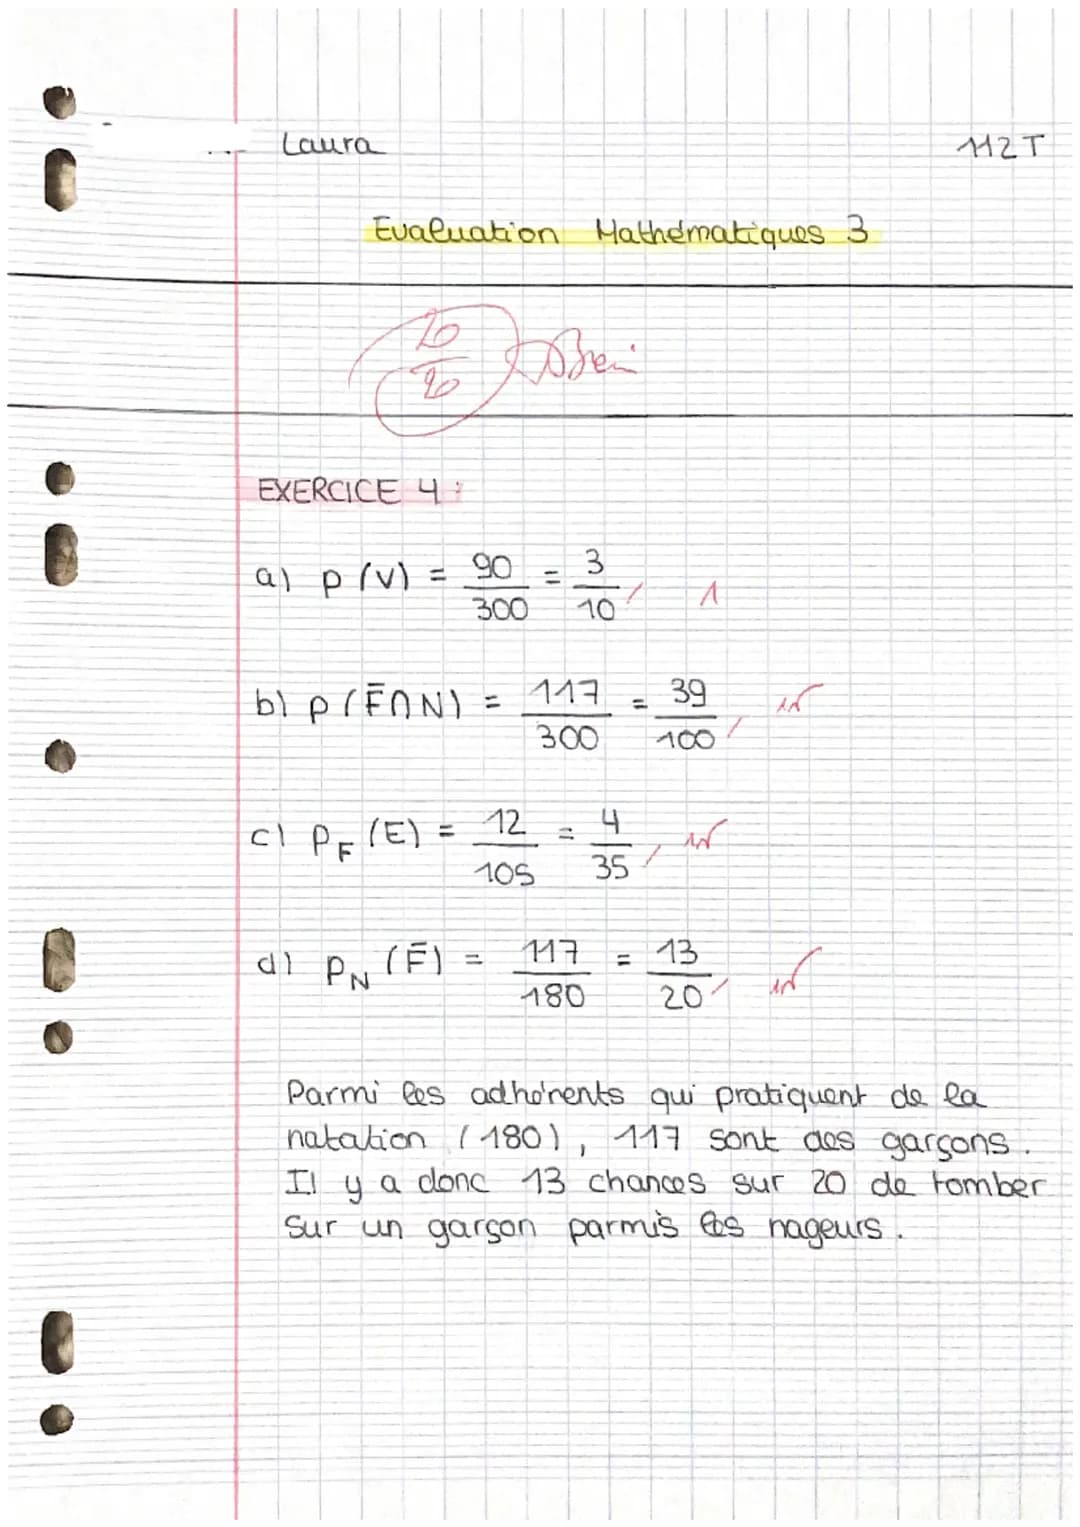 Laura
112T
Evaluation Mathématiques 3
20/20
EXERCICE 4 :
a) p (V) = 90/300 = 3/10 1
b) p (F̄∩N) = 117/300 = 39/100
c) P_F (E) = 12/105 = 4/35
d) P_N (F̄) = 117/180 = 13/20
Parmi les adhérents qui pratiquent de la
natation (180), 117 sont des garçons.
Il y a donc 13 chances sur 20 de tomber
sur un garçon parmis les nageurs.